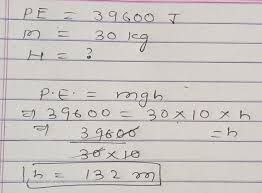 PE = 39600 J
m = 30 kg
H = ?
P.E. = mgh
⇒ 39600 = 30×10×h
⇒ 39600 / 30×10 = h
h = 132 m